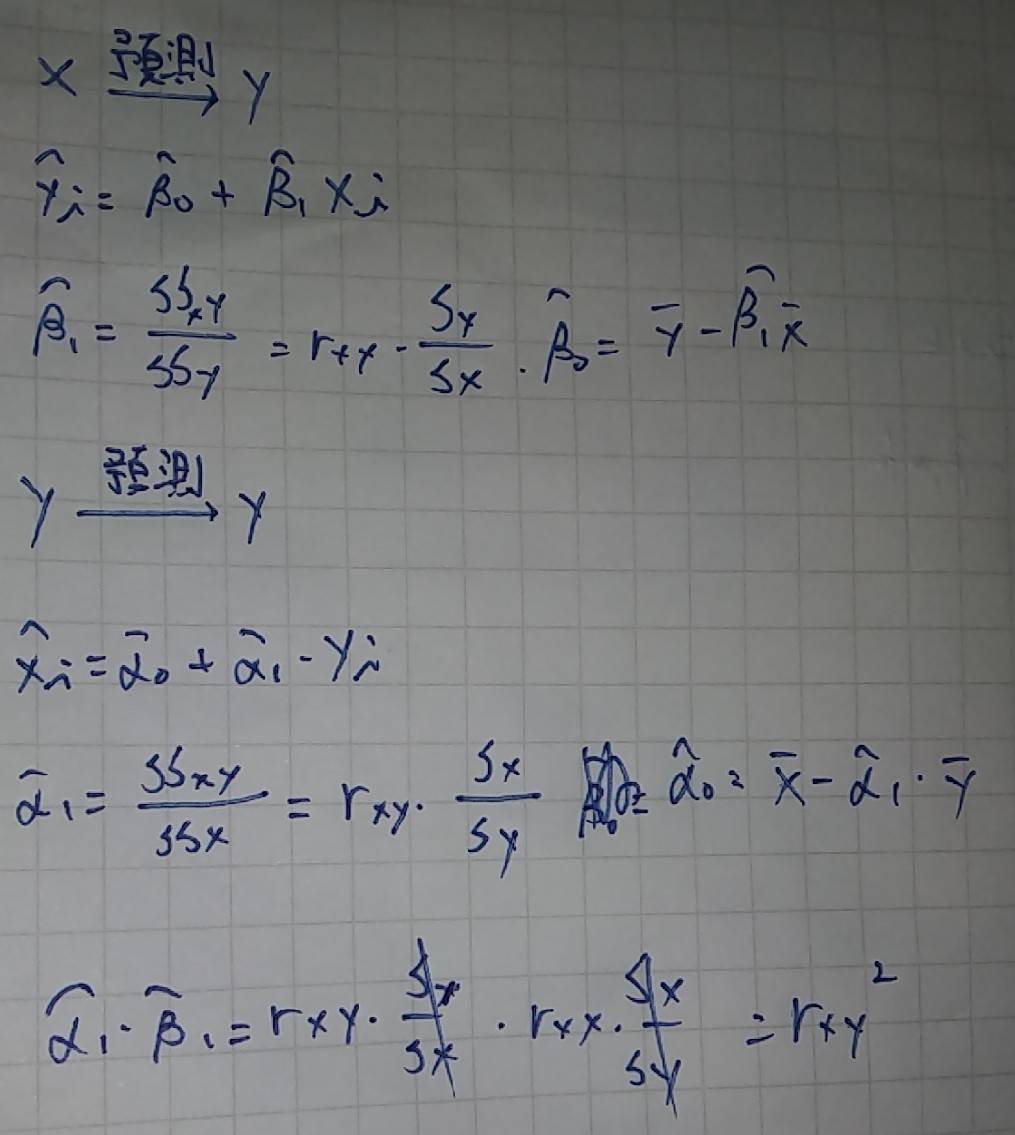 X 预测→ Y
Ŷi = β̂0 + β̂1 Xi
β̂1 = SSxy / SSy = rxy · Sy / Sx . β̂0 = Ȳ − β̂1 X̄
Y 预测→ Y
X̂i = α̂0 + α̂1 - Yi
α̂1 = SSxy / SSx = rxy · Sx / Sy α̂0 = X̄ − α̂1 · Ȳ
α̂1 · β̂1 = rxy · Sy / Sx · rxx · Sx / Sy = rxy²